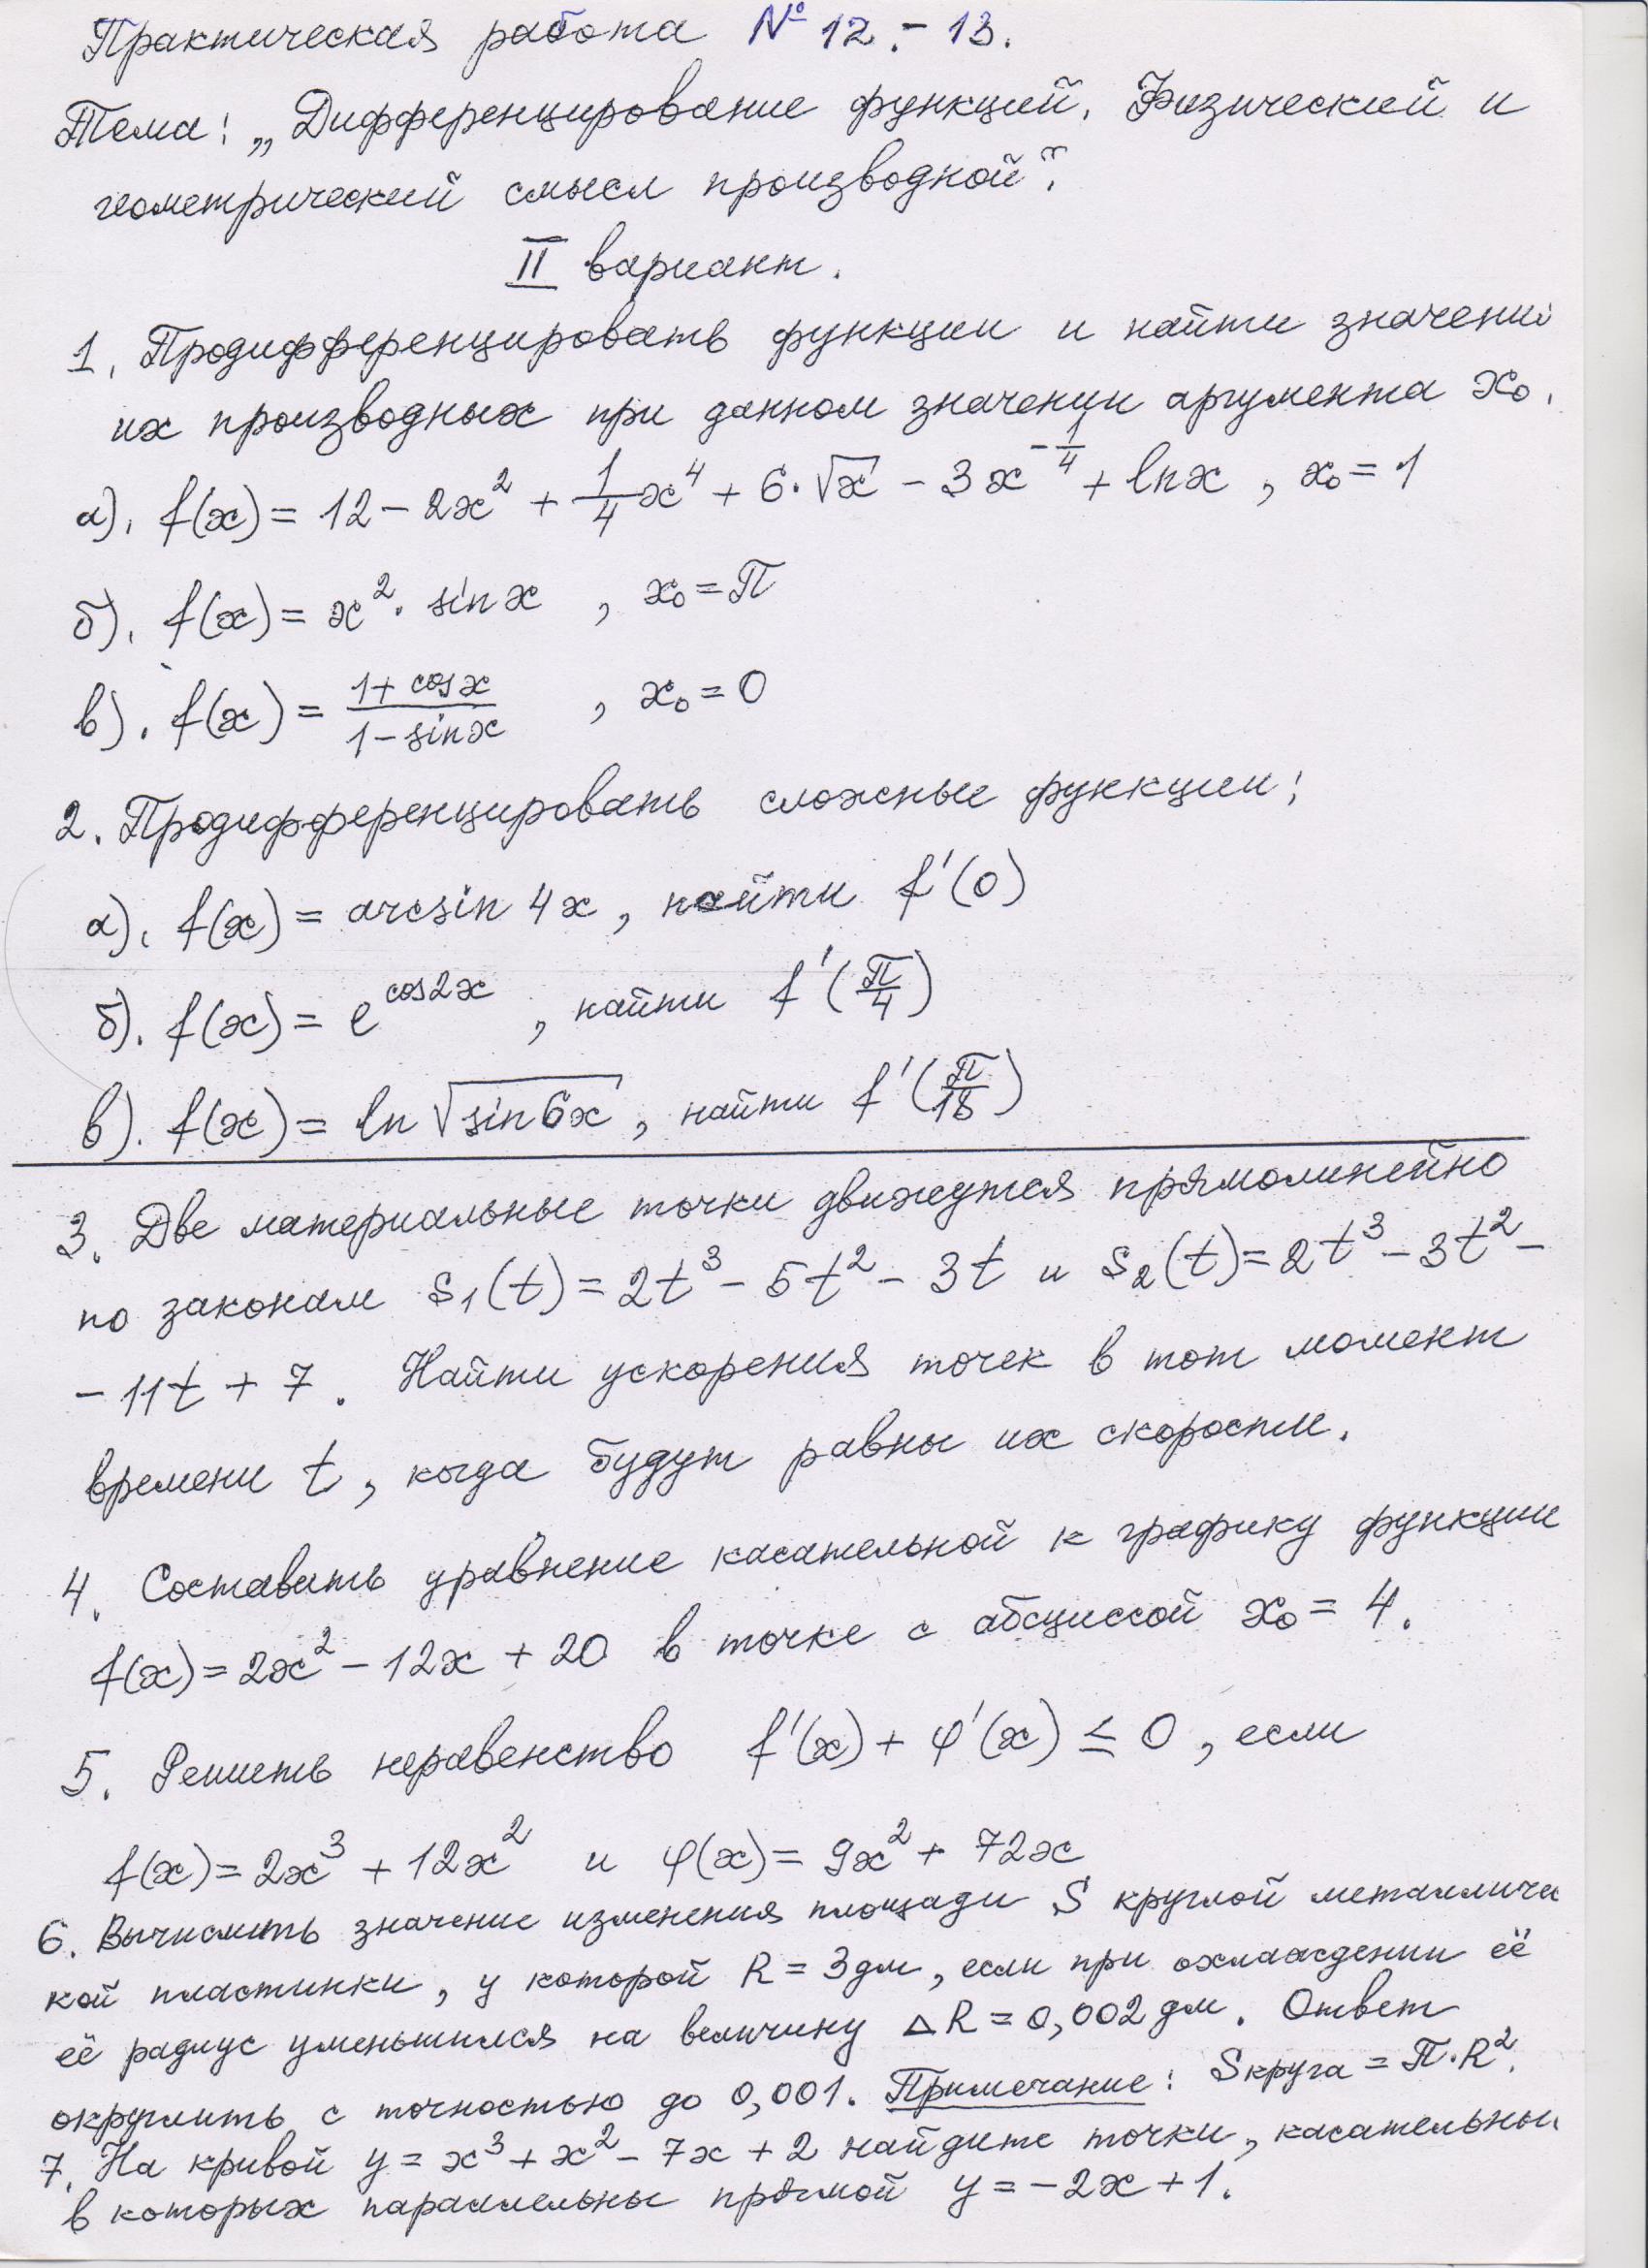 Практическая работа № 12.-13.
Тема: „Дифференцирование функций. Физический и
геометрический смысл производной".
II вариант.
1. Продифференцировать функции и найти значени
их производных при данном значении аргумента x₀.
а). f(x) = 12 - 2x² + 1/4 x⁴ + 6·√x - 3x^(-1/4) + lnx , x₀ = 1
б). f(x) = x²· sinx , x₀ = П
в). f(x) = (1+ cosx)/(1-sinx) , x₀ = 0
2. Продифференцировать сложные функции:
а). f(x) = arcsin 4x , найти f'(0)
б). f(x) = e^(cos2x) , найти f'(П/4)
в). f(x) = ln √(sin6x) , найти f'(П/18)
3. Две материальные точки движутся прямолинейно
по законам S₁(t) = 2t³ - 5t² - 3t и S₂(t) = 2t³ - 3t² -
- 11t + 7 . Найти ускорения точек в тот момент
времени t , когда будут равны их скорости.
4. Составить уравнение касательной к графику функции
f(x) = 2x² - 12x + 20 в точке с абсциссой x₀ = 4.
5. Решить неравенство f'(x) + φ'(x) ≤ 0 , если
f(x) = 2x³ + 12x² и φ(x) = 9x² + 72x
6. Вычислить значение изменения площади S круглой металличес
кой пластинки, у которой R = 3дм, если при охлаждении её
её радиус уменьшился на величину △R = 0,002 дм. Ответ
округлить с точностью до 0,001. Примечание: Sкруга = П·R².
7. На кривой y = x³ + x² - 7x + 2 найдите точки, касательны
в которых параллельны прямой y = -2x + 1.